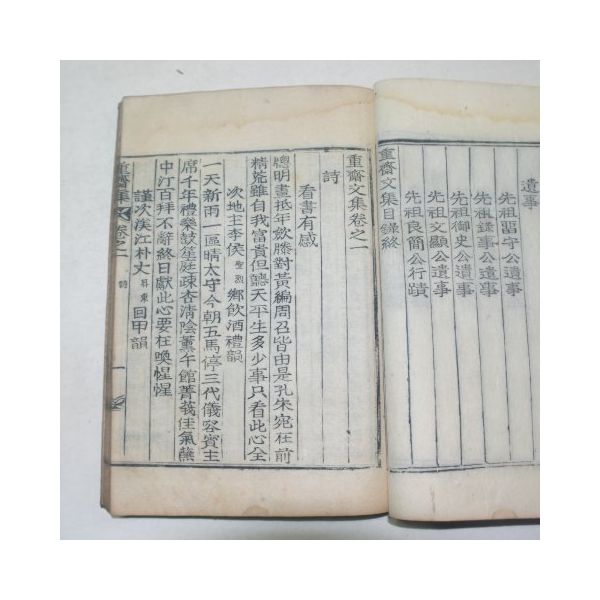 遺事
先祖習守公遺事
先祖錄事公遺事
先祖御史公遺事
先祖文顯公遺事
先祖良簡公行蹟
重齋文集目錄終
重齋文集卷之一
詩
看書有感
聰明晝抵年斂滕對黃編周召皆由是孔朱宛在前
精荒雖自我富貴但聽天平生多少事只看此心全
次地主李侯聖烈鄉飲酒禮韻
一天新雨一區晴太守今朝五馬停三代儀容賓主
席千年禮樂鼓筵庭疎杏清陰薰午館菁莪佳氣蘸
中汀百拜不辭終日獻此心要在喚惺惺
謹次溪江朴丈回甲韻
重齋集卷之一 詩 一